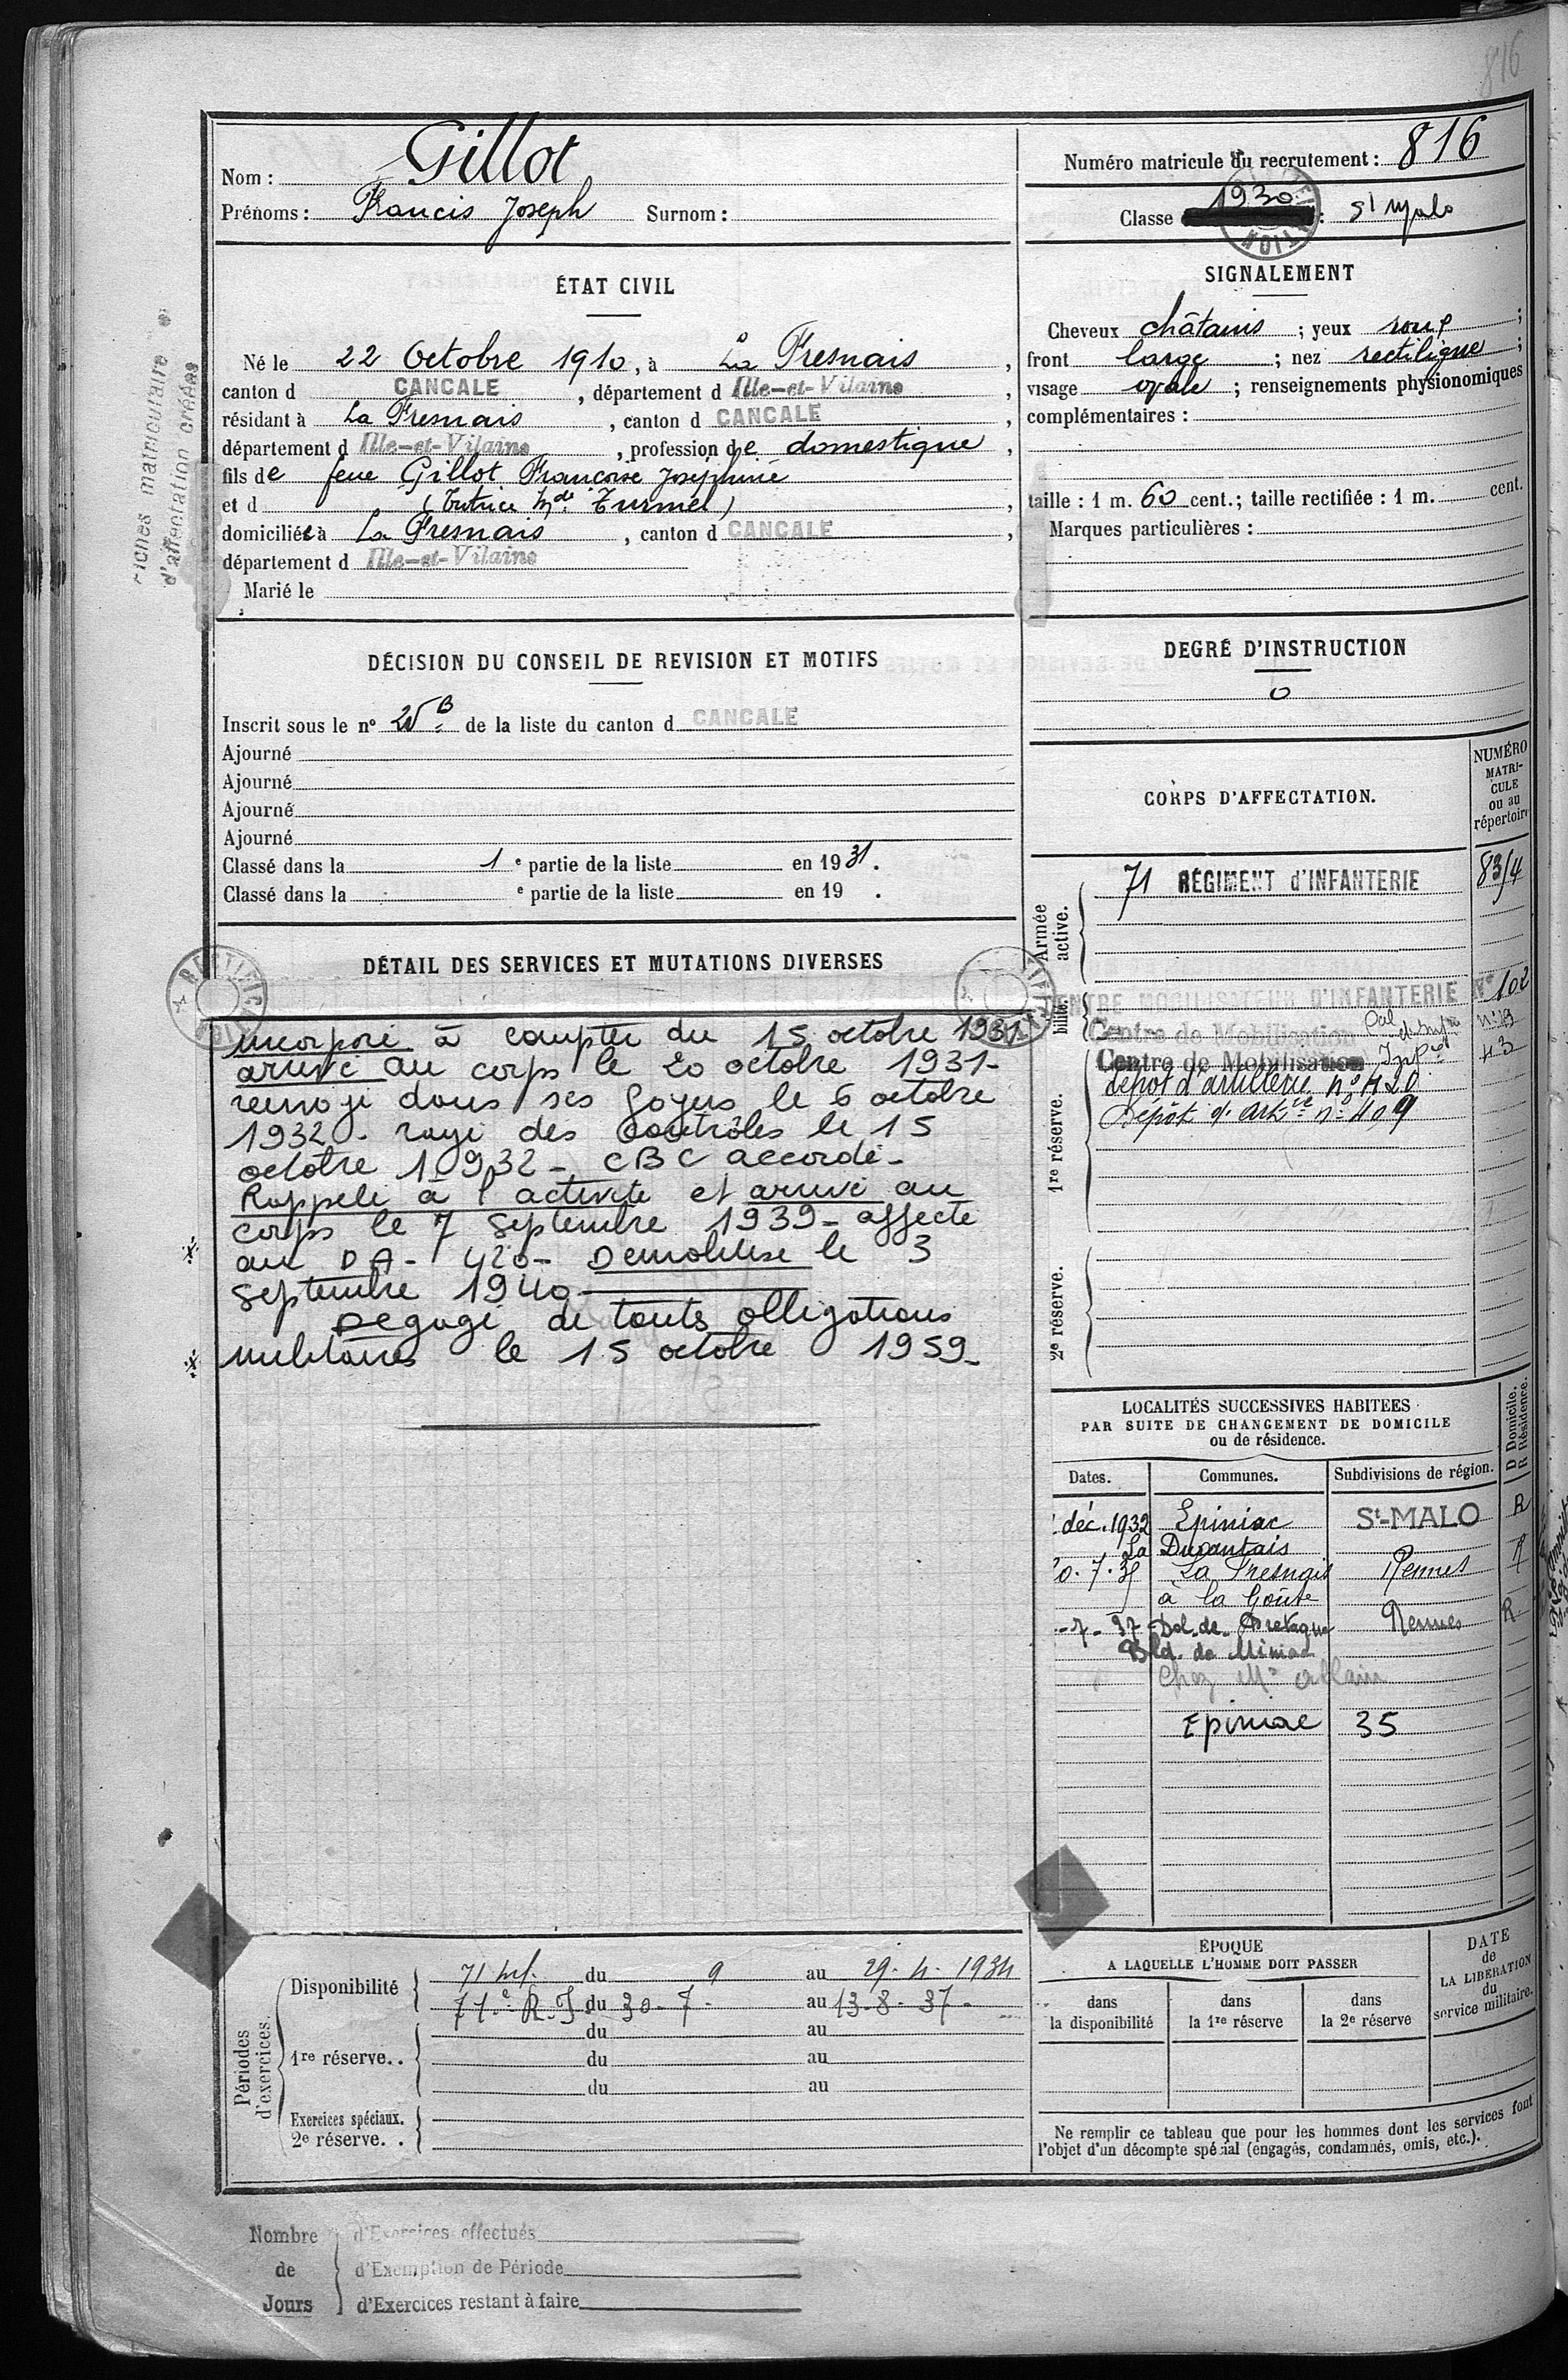 816
Nom : Gillot
Prénoms : Francis Joseph Surnom :
Numéro matricule du recrutement : 816
Classe 1930 : St Malo
ÉTAT CIVIL
Né le 22 Octobre 1910, à La Fresnais,
canton d CANCALE, département d Ille-et-Vilaine,
résidant à La Fresnais, canton d CANCALE,
département d Ille-et-Vilaine, profession de domestique,
fils de feue Gillot Françoise Joséphine
et d (tutrice Mde Turmel),
domiciliée à La Fresnais, canton d CANCALE,
département d Ille-et-Vilaine
Marié le
SIGNALEMENT
Cheveux châtains ; yeux roux ;
front large ; nez rectiligne ;
visage ovale ; renseignements physionomiques
complémentaires :
taille : 1 m. 60 cent.; taille rectifiée : 1 m. cent.
Marques particulières :
Fiches matriculaire et
d'affectation créées
DÉCISION DU CONSEIL DE REVISION ET MOTIFS
Inscrit sous le n° de la liste du canton d CANCALE
Ajourné
Ajourné
Ajourné
Ajourné
Classé dans la 1e partie de la liste en 1931.
Classé dans la e partie de la liste en 19 .
DEGRÉ D'INSTRUCTION
0
CORPS D'AFFECTATION.
NUMÉRO
MATRI-
CULE
ou au
répertoire
Armée
active.
71 RÉGIMENT d'INFANTERIE 8314
CENTRE MOBILISATEUR D'INFANTERIE N° 102
Centre de Mobilisation Col d'Infie n° 19
Centre de Mobilisation 43
1re réserve.
dépôt d'artillerie n° 420
Dépôt d'artie n° 409
2e réserve.
DÉTAIL DES SERVICES ET MUTATIONS DIVERSES
RECTIFICATION
incorporé à compter du 15 octobre 1931
arrivé au corps le 20 octobre 1931-
renvoyé dans ses foyers le 6 octobre
1932 - rayé des contrôles le 15
octobre 1932 - CBC accordé -
Rappelé à l'activité et arrivé au
corps le 7 septembre 1939 - affecté
aux DA - 420 - Démobilisé le 3
septembre 1940
Dégagé de toutes obligations
militaires le 15 octobre 1959-
LOCALITÉS SUCCESSIVES HABITÉES
PAR SUITE DE CHANGEMENT DE DOMICILE
ou de résidence.
D Domicile.
R Résidence.
Dates. Communes. Subdivisions de région.
déc. 1932 Epiniac St-MALO R
La Duvantais
7. La Fresnais Rennes R
à la Goûte
7 - 37 Dol-de-Bretagne Rennes R
Bld. de Miniac
chez Mr Allain
Epiniac 35
Périodes
d'exercices.
Disponibilité 71 Inf. du 9 au 29. 4. 1934
71e R.I du 30-7- au 13-8-37-
du au
1re réserve.. du au
du au
Exercices spéciaux.
2e réserve. .
ÉPOQUE
A LAQUELLE L'HOMME DOIT PASSER
DATE
de
LA LIBÉRATION
du
service militaire.
dans
la disponibilité
dans
la 1re réserve
dans
la 2e réserve
Ne remplir ce tableau que pour les hommes dont les services font
l'objet d'un décompte spécial (engagés, condamnés, omis, etc.).
Nombre d'Exercices effectués
de d'Exemption de Période
Jours d'Exercices restant à faire